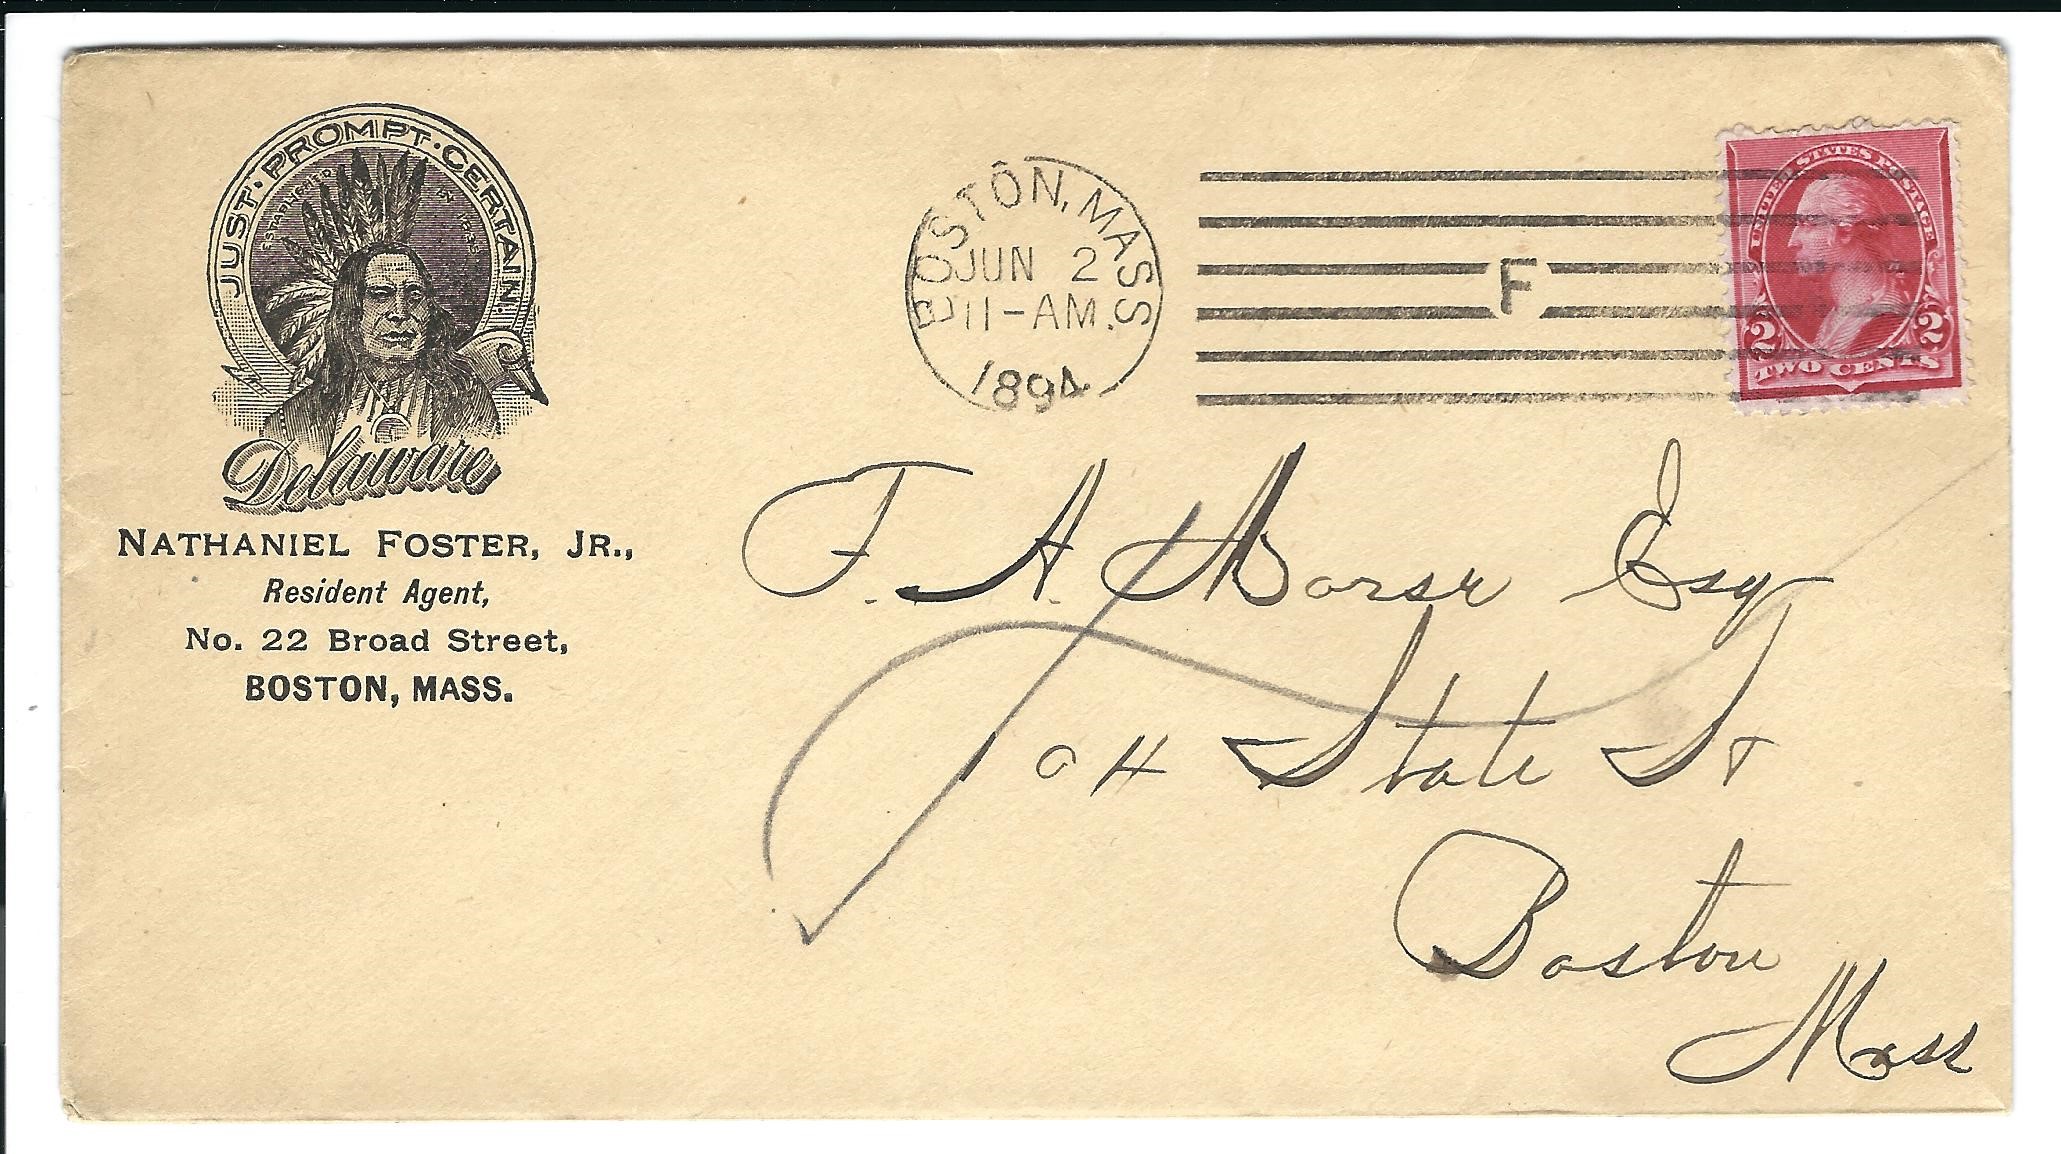 JUST · PROMPT · CERTAIN.
ESTABLISHED IN
Delaware
NATHANIEL FOSTER, JR.,
Resident Agent,
No. 22 Broad Street,
BOSTON, MASS.
BOSTON, MASS
JUN 2
11-AM.
1894
F
UNITED STATES POSTAGE
2 2
TWO CENTS
F. A. Morse Esq
104 State St
Boston
Mass